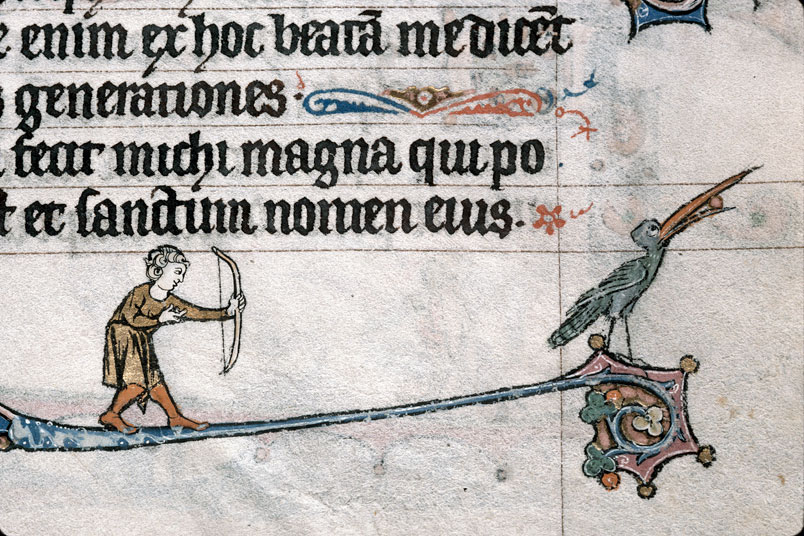 enim ex hoc beatā medicēt
generationes.
fecit michi magna qui po
t et sanctum nomen eius.